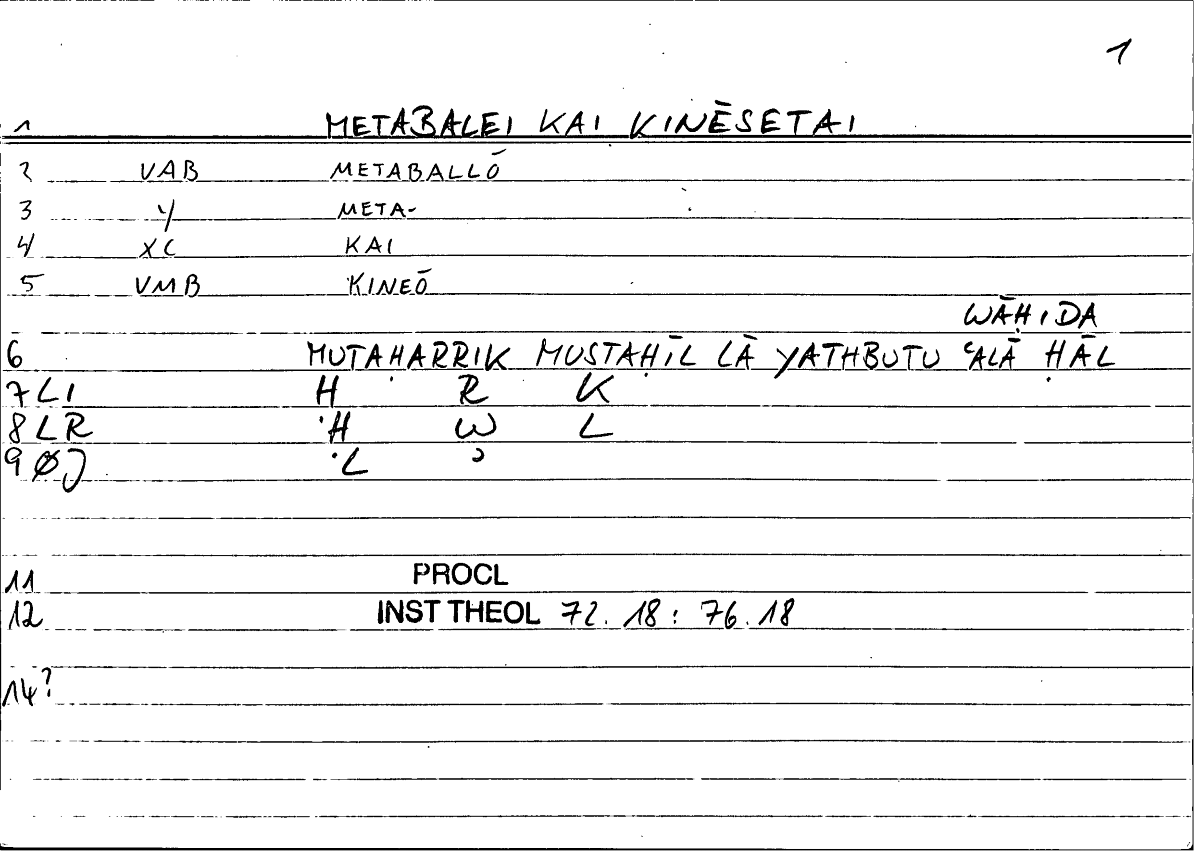 1
1 METABALEI KAI KINĒSETAI
2 VAB METABALLŌ
3 Y META-
4 XC KAI
5 VMB KINEŌ
WĀḤIDA
6 MUTAḤARRIK MUSTAḤĪL LĀ YATHBUTU ʿALĀ ḤĀL
7 LI Ḥ R K
8 LR Ḥ W L
9 ØJ L ʾ
11 PROCL
12 INST THEOL 72.18: 76.18
14?